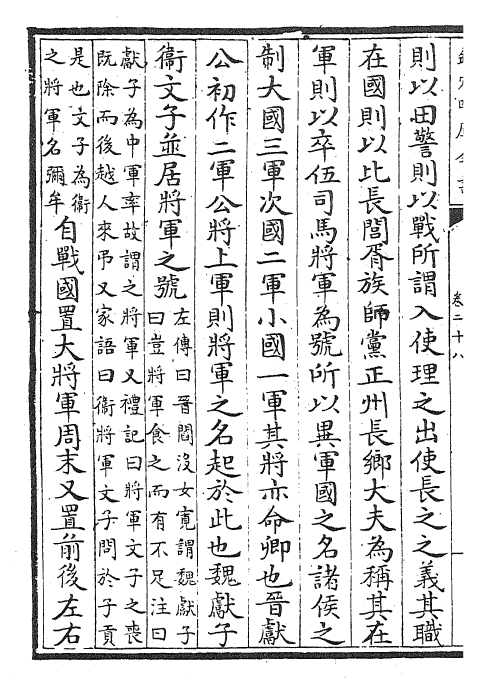 卷二十八
則以田警則以戰所謂入使理之出使長之之義其職
在國則以比長閭胥族師黨正州長鄉大夫為稱其在
軍則以卒伍司馬將軍為號所以異軍國之名諸侯之
制大國三軍次國二軍小國一軍其將亦命卿也晉獻
公初作二軍公將上軍則將軍之名起於此也魏獻子
衞文子並居將軍之號
左傳曰晉閻沒女寬謂魏獻子
曰豈將軍食之而有不足注曰
獻子為中軍率故謂之將軍又禮記曰將軍文子之喪
既除而後越人來弔又家語曰衞將軍文子問於子貢
是也文子為衞
之將軍名彌牟
自戰國置大將軍周末又置前後左右